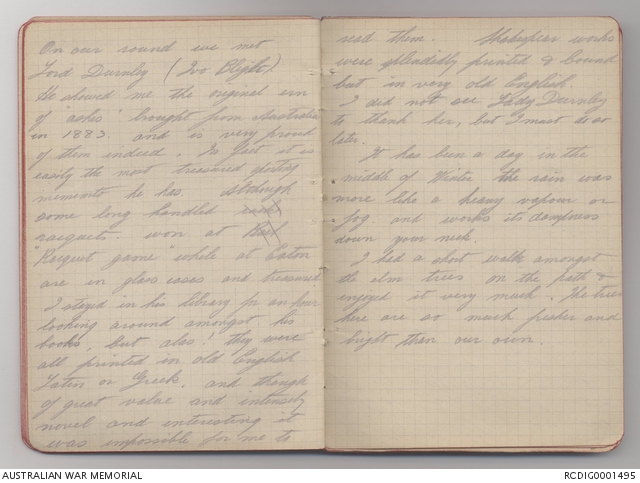 On our round we met
Lord Durnley (Ivo Blyth).
He showed me the original urn
of ashes" brought from Australia
in 1883. and is very proud
of them indeed. In fact it is
easily the most treasured sporting
memento he has. Although
some long handled
racquets won at
"Racquet game" while at Eaton
are in glass cases and treasured
I stayed in his library for an hour
looking around amongst his
books, but alas! they were
all printed in old English
Latin or Greek. and though
of great value and intensely
novel and interesting it
was impossible for me to
read them. Shakespear works
were splendidly printed & bound
but in very old English.
I did not see Lady Durnley
to thank her, but I must do so
later.
It has been a day in the
middle of Winter the rain was
more like a heavy vapour or
fog and works its dampness
down your neck.
I had a short walk amongst
the elm trees on the path &
enjoyed it very much. The trees
here are so much fresher and
bright than our own.
AUSTRALIAN WAR MEMORIAL
RCDIG0001495